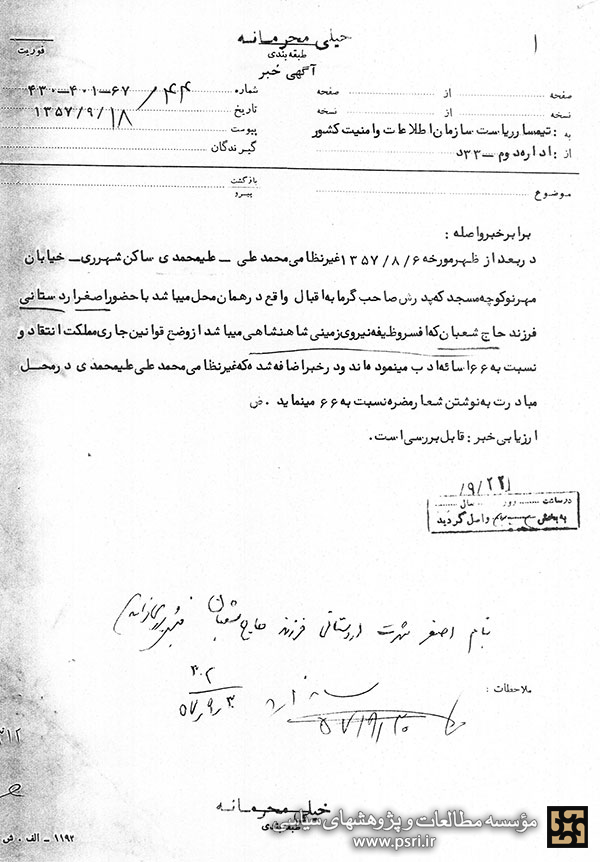 خیلی محرمانه
طبقه‌بندی
آگهی خبر
فوریت
۱
صفحه از صفحه
نسخه از نسخه
به : تیمسار ریاست سازمان اطلاعات و امنیت کشور
از : اداره دوم – ۳۳د
شماره ۴۴/ ۶۷–۴۰۱–۴۳۰
تاریخ ۱۳۵۷/۹/۱۸
پیوست
گیرندگان
بازگشت
پیرو
موضوع
برابر خبر واصله :
در بعد از ظهر مورخه ۱۳۵۷/۸/۶ غیرنظامی محمد علی – علیمحمدی ساکن شهرری – خیابان
مهرنو کوچه مسجد که پدرش صاحب گرمابه اقبال واقع در همان محل میباشد با حضور اصغر اردستانی
فرزند حاج شعبان که افسر وظیفه نیروی زمینی شاهنشاهی میباشد از وضع قوانین جاری مملکت انتقاد و
نسبت به ۶۶ اسائه ادب مینموده اند و در خبر اضافه شده که غیرنظامی محمد علی علیمحمدی در محل
مبادرت به نوشتن شعار مضره نسبت به ۶۶ مینماید . ض
ارزیابی خبر : قابل بررسی است .
۹/۲۲/
در ساعت روز سال
به بخش واصل گردید
بنام اصغر شهرت اردستانی فرزند حاج شعبان
ملاحظات :
سابقه ندارد
۳۰۲
۵۷/۹/۳۰
۵۷/۹/۳۰
۳۱۲
خیلی محرمانه
طبقه‌بندی
۱۱۹۲ – الف . ش
مؤسسه مطالعات و پژوهشهای سیاسی
www.psri.ir